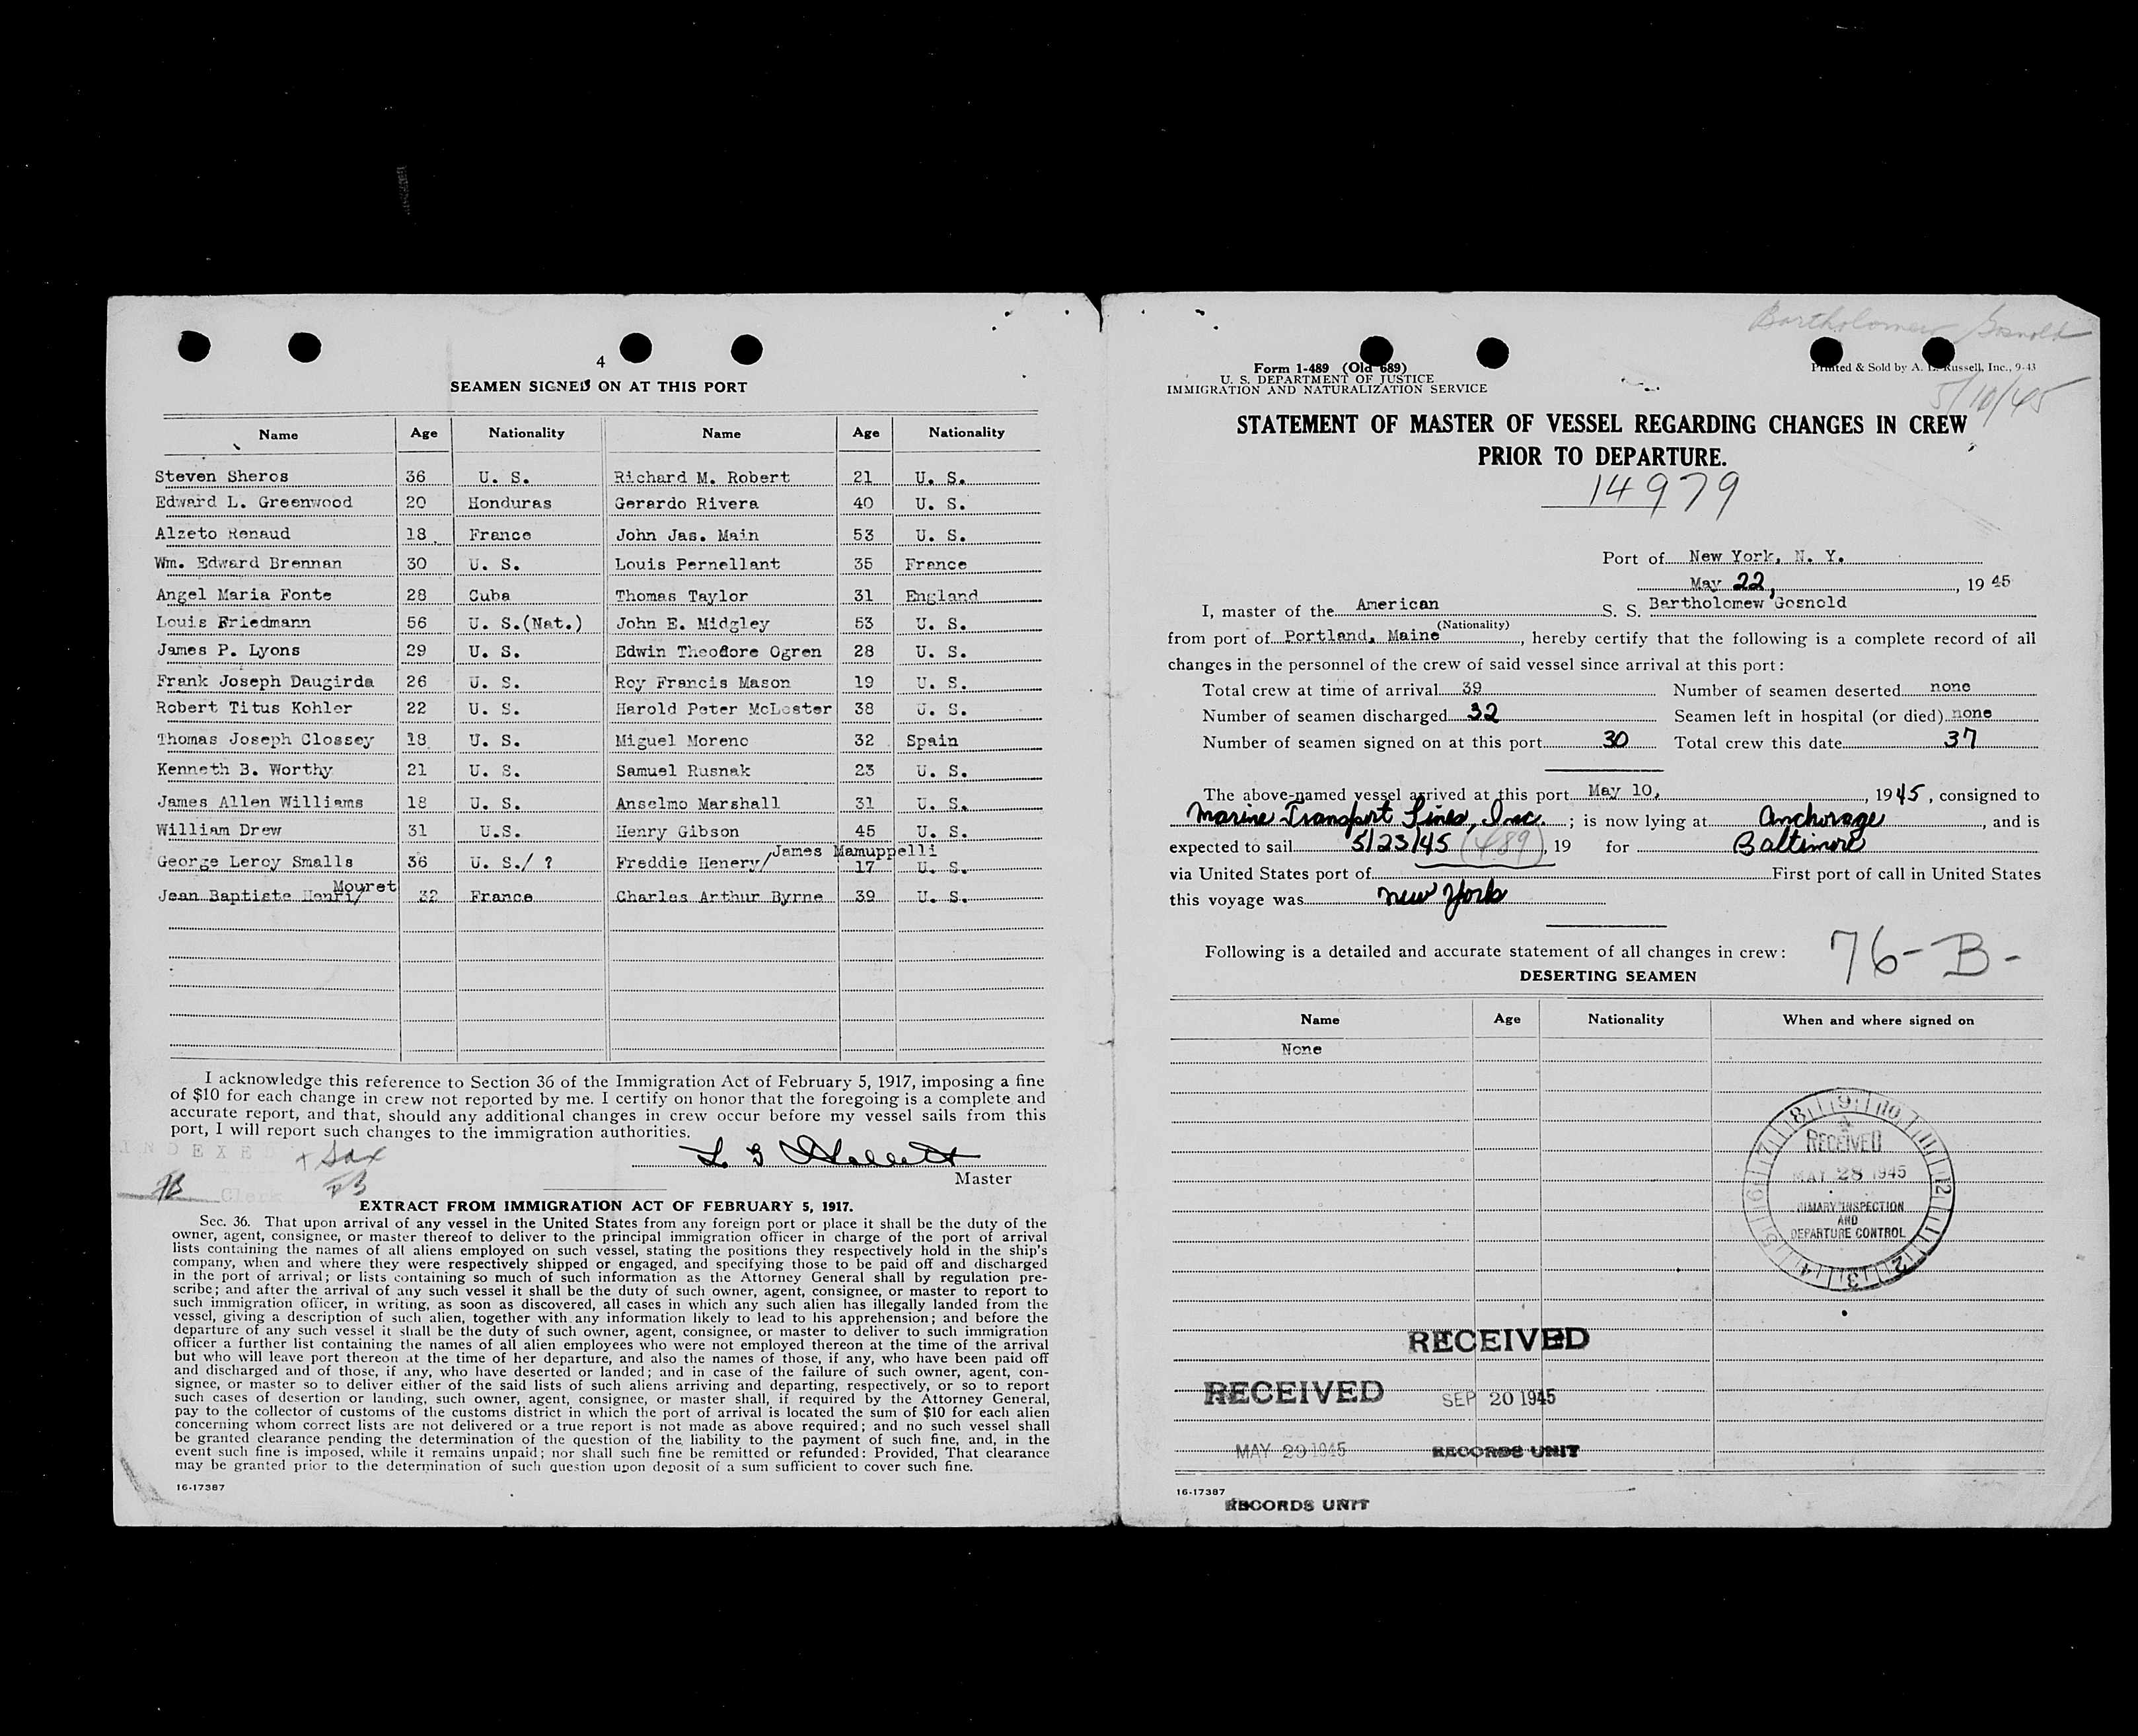 4
SEAMEN SIGNED ON AT THIS PORT
Name Age Nationality Name Age Nationality
Steven Sheros 36 U. S. Richard M. Robert 21 U. S.
Edward L. Greenwood 20 Honduras Gerardo Rivera 40 U. S.
Alzeto Renaud 18 France John Jas. Main 53 U. S.
Wm. Edward Brennan 30 U. S. Louis Pernellant 35 France
Angel Maria Fonte 28 Cuba Thomas Taylor 31 England
Louis Friedmann 56 U. S.(Nat.) John E. Midgley 53 U. S.
James P. Lyons 29 U. S. Edwin Theodore Ogren 28 U. S.
Frank Joseph Daugirda 26 U. S. Roy Francis Mason 19 U. S.
Robert Titus Kohler 22 U. S. Harold Peter McLester 38 U. S.
Thomas Joseph Clossey 18 U. S. Miguel Moreno 32 Spain
Kenneth B. Worthy 21 U. S. Samuel Rusnak 23 U. S.
James Allen Williams 18 U. S. Anselmo Marshall 31 U. S.
William Drew 31 U.S. Henry Gibson 45 U. S.
James Mamuppelli
George Leroy Smalls 36 U. S./ ? Freddie Henery/ 17 U. S.
Mouret
Jean Baptiste Henri/ 32 France Charles Arthur Byrne 39 U. S.
I acknowledge this reference to Section 36 of the Immigration Act of February 5, 1917, imposing a fine
of $10 for each change in crew not reported by me. I certify on honor that the foregoing is a complete and
accurate report, and that, should any additional changes in crew occur before my vessel sails from this
port, I will report such changes to the immigration authorities.
INDEXED
Master
Clerk
EXTRACT FROM IMMIGRATION ACT OF FEBRUARY 5, 1917.
Sec. 36. That upon arrival of any vessel in the United States from any foreign port or place it shall be the duty of the
owner, agent, consignee, or master thereof to deliver to the principal immigration officer in charge of the port of arrival
lists containing the names of all aliens employed on such vessel, stating the positions they respectively hold in the ship's
company, when and where they were respectively shipped or engaged, and specifying those to be paid off and discharged
in the port of arrival; or lists containing so much of such information as the Attorney General shall by regulation pre-
scribe; and after the arrival of any such vessel it shall be the duty of such owner, agent, consignee, or master to report to
such immigration officer, in writing, as soon as discovered, all cases in which any such alien has illegally landed from the
vessel, giving a description of such alien, together with any information likely to lead to his apprehension; and before the
departure of any such vessel it shall be the duty of such owner, agent, consignee, or master to deliver to such immigration
officer a further list containing the names of all alien employees who were not employed thereon at the time of the arrival
but who will leave port thereon at the time of her departure, and also the names of those, if any, who have been paid off
and discharged and of those, if any, who have deserted or landed; and in case of the failure of such owner, agent, con-
signee, or master so to deliver either of the said lists of such aliens arriving and departing, respectively, or so to report
such cases of desertion or landing, such owner, agent, consignee, or master shall, if required by the Attorney General,
pay to the collector of customs of the customs district in which the port of arrival is located the sum of $10 for each alien
concerning whom correct lists are not delivered or a true report is not made as above required; and no such vessel shall
be granted clearance pending the determination of the question of the liability to the payment of such fine, and, in the
event such fine is imposed, while it remains unpaid; nor shall such fine be remitted or refunded: Provided, That clearance
may be granted prior to the determination of such question upon deposit of a sum sufficient to cover such fine.
16-17387
Bartholomew Gosnold
Form 1-489 (Old 689)
U. S. DEPARTMENT OF JUSTICE
IMMIGRATION AND NATURALIZATION SERVICE
Printed & Sold by A. L. Russell, Inc., 9-43
5/10/45
STATEMENT OF MASTER OF VESSEL REGARDING CHANGES IN CREW
PRIOR TO DEPARTURE.
14979
Port of New York, N. Y.
May 22, , 1945
I, master of the American S. S. Bartholomew Gosnold
(Nationality)
from port of Portland, Maine, hereby certify that the following is a complete record of all
changes in the personnel of the crew of said vessel since arrival at this port:
Total crew at time of arrival 39 Number of seamen deserted none
Number of seamen discharged 32 Seamen left in hospital (or died) none
Number of seamen signed on at this port 30 Total crew this date 37
The above-named vessel arrived at this port May 10, , 1945, consigned to
Marine Transport Lines, Inc. ; is now lying at Anchorage, and is
expected to sail 5/23/45 (489), 19 for Baltimore
via United States port of First port of call in United States
this voyage was New York
Following is a detailed and accurate statement of all changes in crew:
76-B-
DESERTING SEAMEN
Name Age Nationality When and where signed on
None
RECEIVED
MAY 28 1945
PRIMARY INSPECTION
AND
DEPARTURE CONTROL
RECEIVED
SEP 20 1945
RECORDS UNIT
RECEIVED
MAY 29 1945
RECORDS UNIT
16-17387